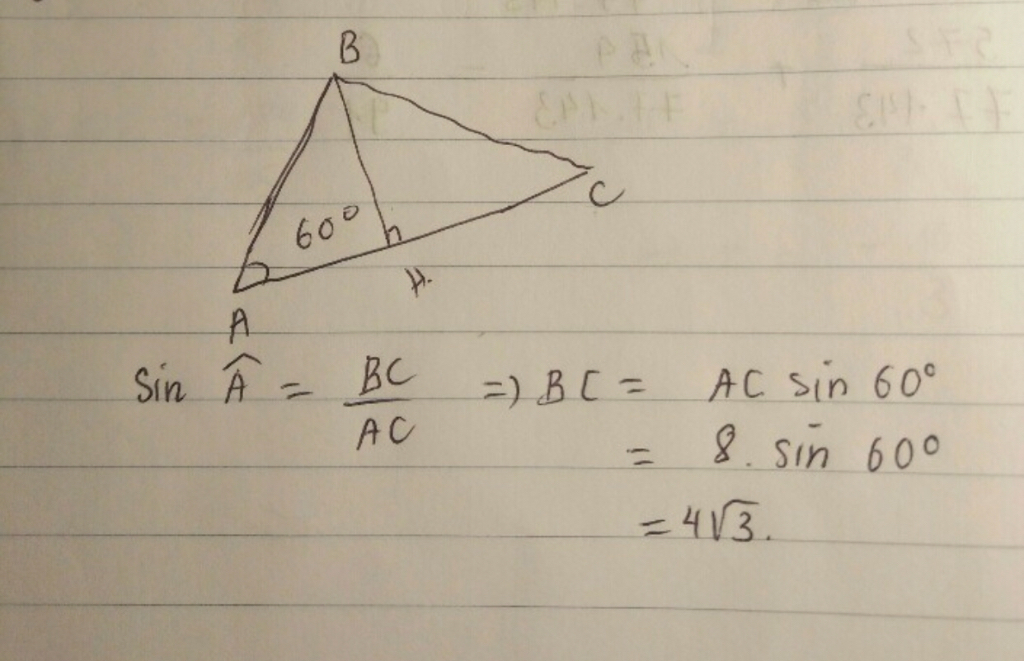 B
60°
C
H.
A
Sin Â = BC/AC => BC = AC sin 60°
= 8. sin 60°
= 4√3.